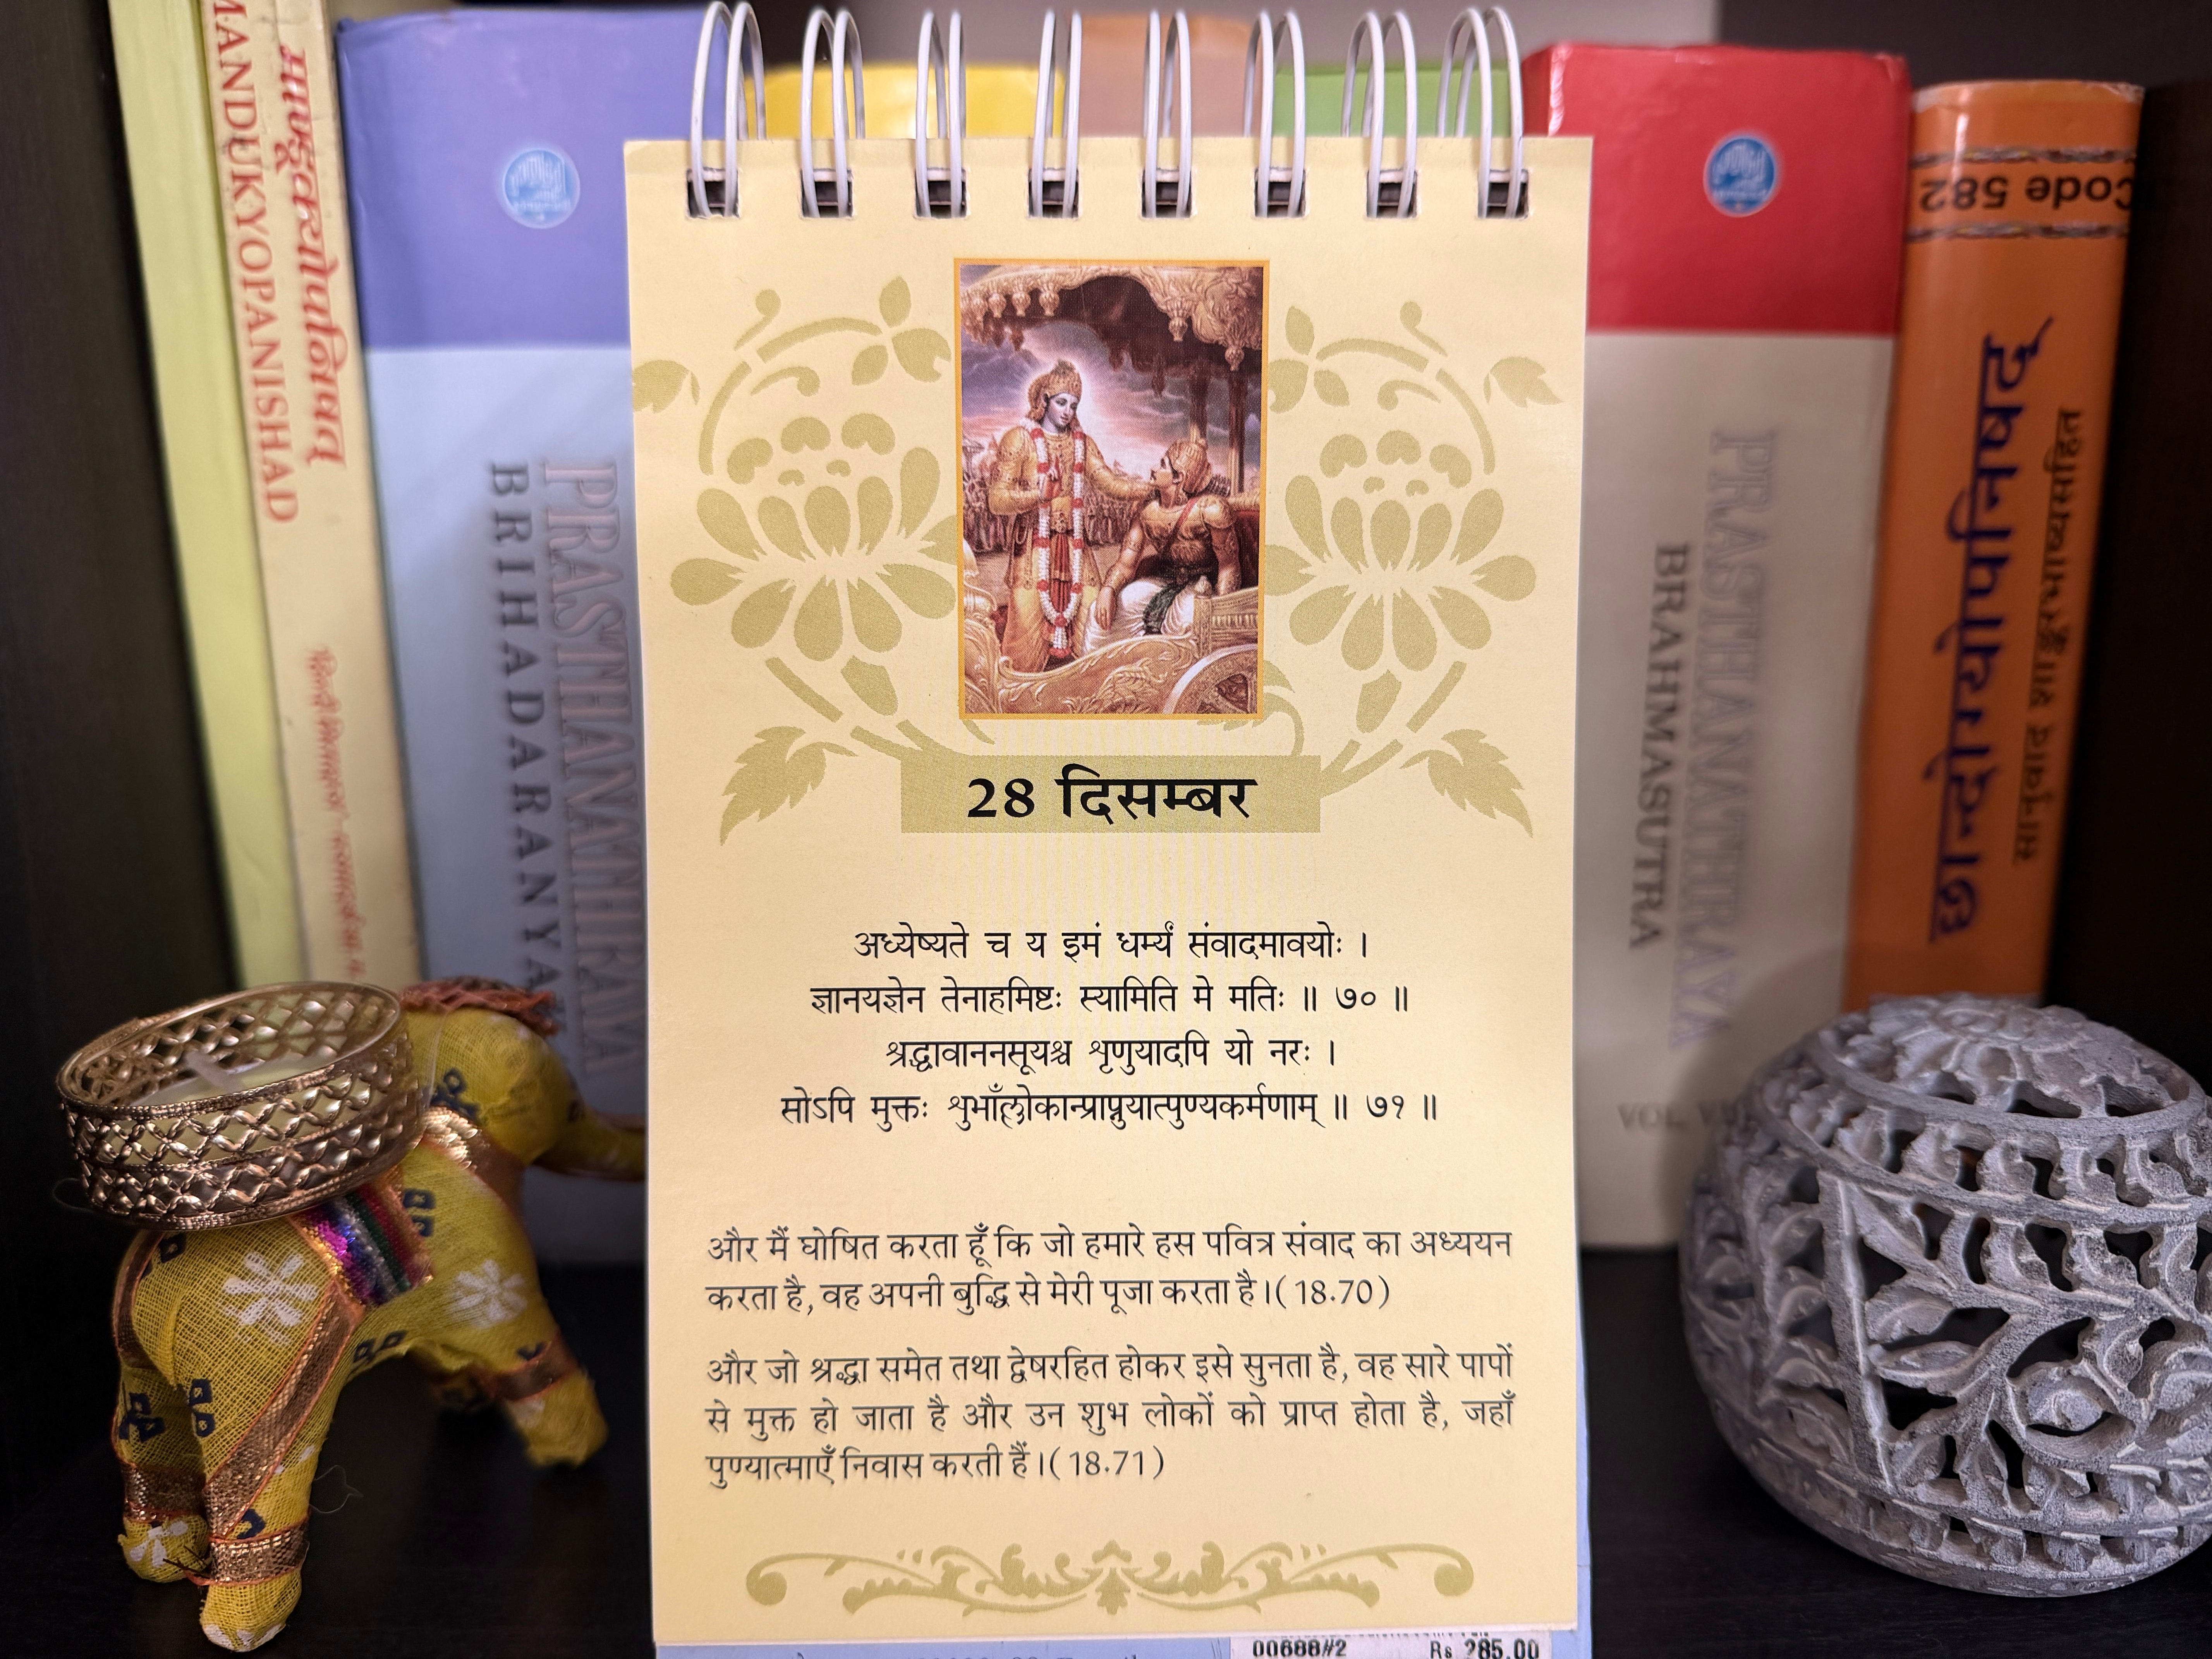 MANDUKYOPANISHAD
माण्डूक्योपनिषद्
PRASTHANATHRAYA
BRIHADARANYA
28 दिसम्बर
अध्येष्यते च य इमं धर्म्यं संवादमावयोः ।
ज्ञानयज्ञेन तेनाहमिष्टः स्यामिति मे मतिः ॥ ७० ॥
श्रद्धावाननसूयश्च शृणुयादपि यो नरः ।
सोऽपि मुक्तः शुभाँल्लोकान्प्राप्नुयात्पुण्यकर्मणाम् ॥ ७१ ॥
और मैं घोषित करता हूँ कि जो हमारे हस पवित्र संवाद का अध्ययन
करता है, वह अपनी बुद्धि से मेरी पूजा करता है।(18.70)
और जो श्रद्धा समेत तथा द्वेषरहित होकर इसे सुनता है, वह सारे पापों
से मुक्त हो जाता है और उन शुभ लोकों को प्राप्त होता है, जहाँ
पुण्यात्माएँ निवास करती हैं।(18.71)
00688#2 Rs 285.00
PRASTHANATHRAYA
BRAHMASUTRA
VOL
Code 582
छान्दोग्योपनिषद्
सानुवाद शाङ्करभाष्यसहित